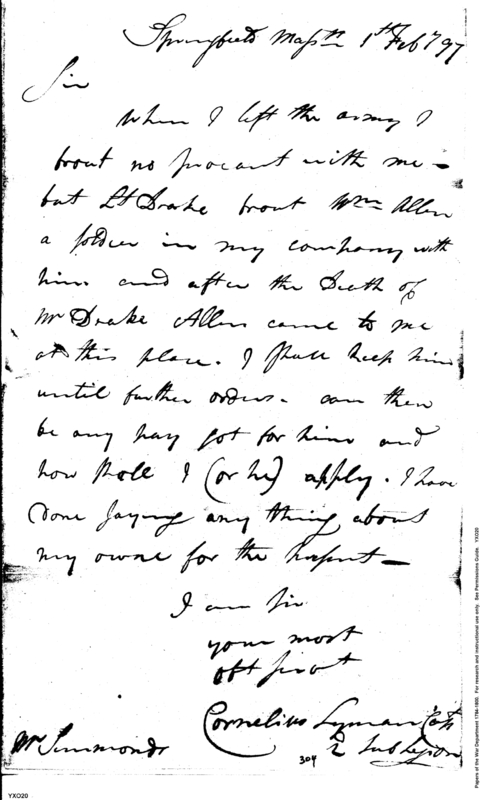 Springfield Massts 1th Feby 97
Sir
When I left the army I
brout no servant with me -
but Lt Drake brout Wm Allen
a soldier in my company with
him and after the Deeth of
Mr Drake Allen came to me
at this place. I shall keep him
until further orders - can there
be any pay got for him and
how shall I (or he) apply. I have
Done saying any thing about
my owne for the present -
I am Sir
your most
obt servt
Cornelius Lyman Capt
2 Sub Legion
Mr Simmonds
304
YXO20
Papers of the War Department 1784-1800. For research and instructional use only. See Permissions Guide. YXO20